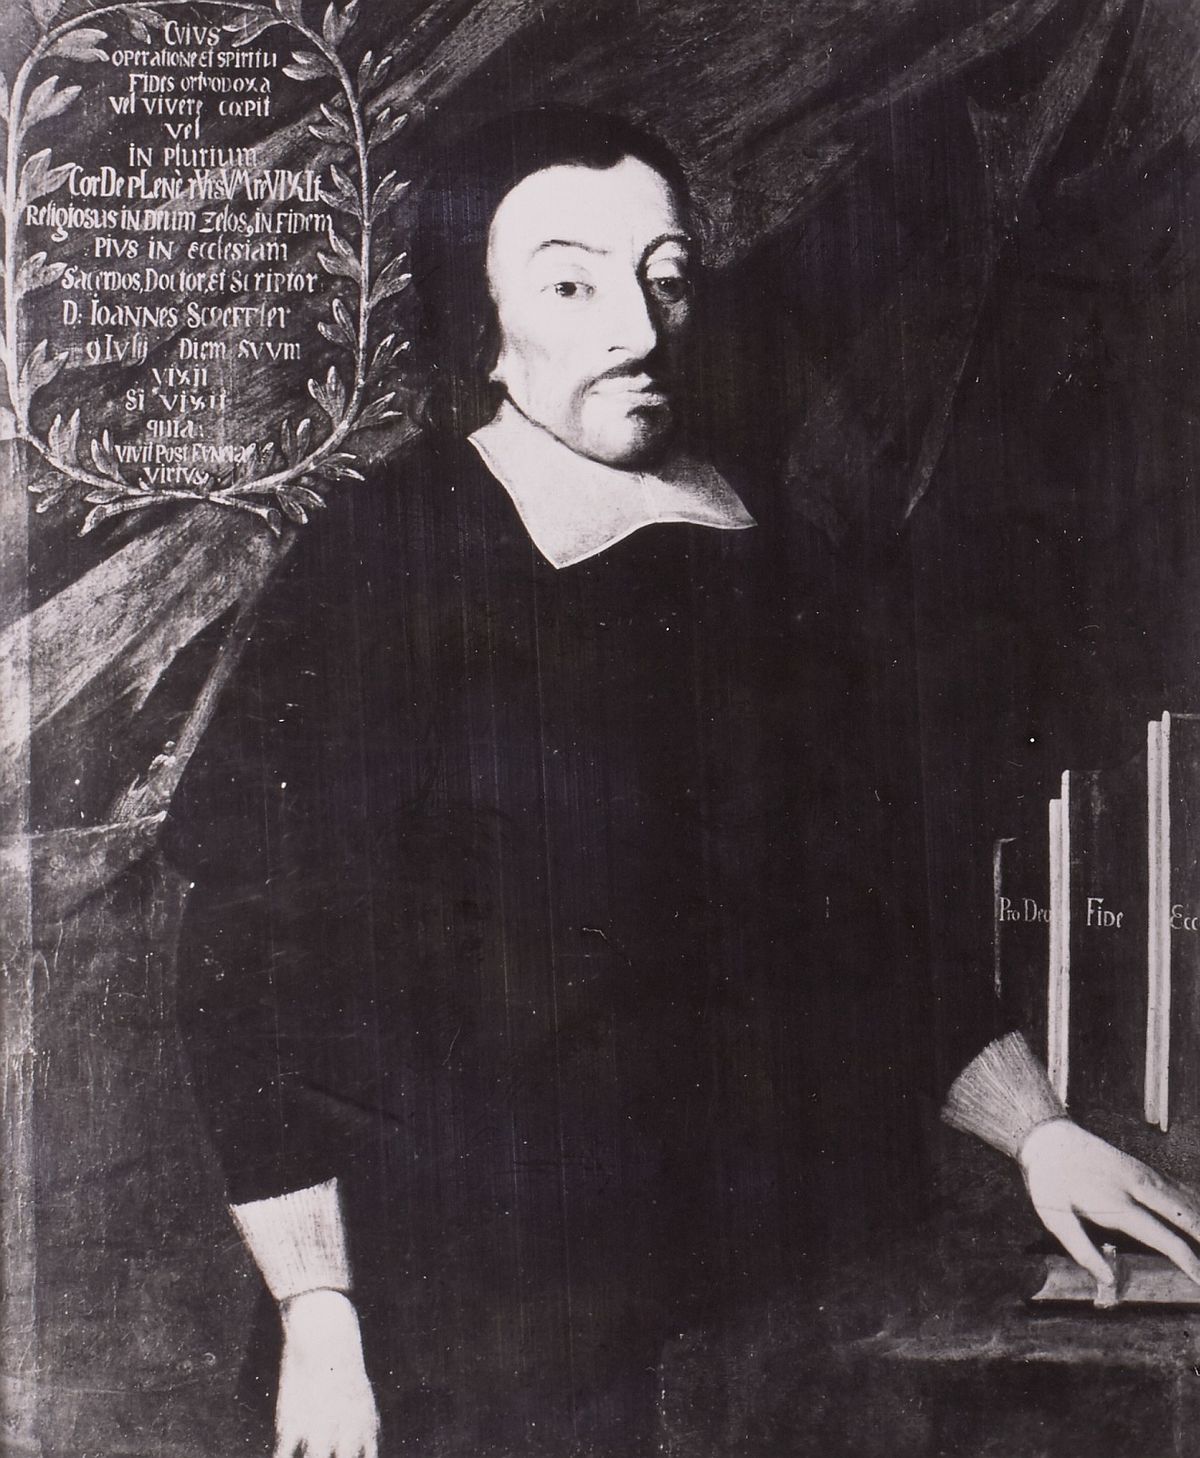 CVIVS
operatione et spiritu
Fides orthodoxa
vel vivere cœpit
vel
in plurium
CorDe pLenè rVrsVM reVIXIt
Religiosus in Deum Zelos, in Fidem
Pius in ecclesiam
Sacerdos, Doctor, et Scriptor
D: Ioannes Scheffler
9 Iulij Diem suum
vixit
Si vixit
quia
vivit Post Funera
Virtus
Pro Deo
Fide
Ecc